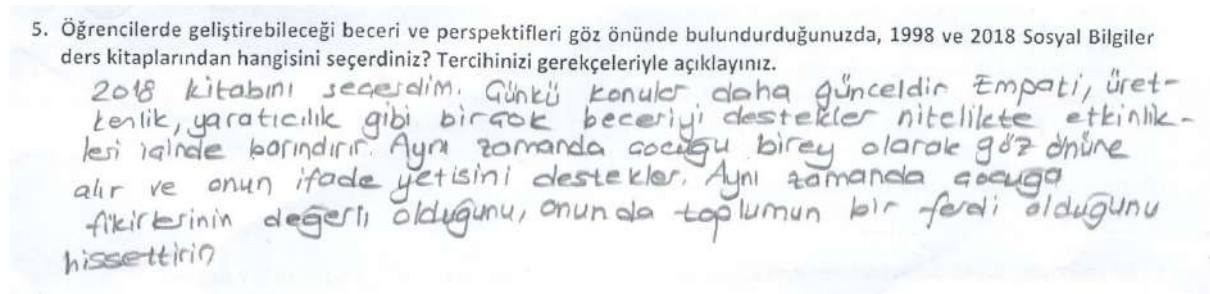 5. Öğrencilerde geliştirebileceği beceri ve perspektifleri göz önünde bulundurduğunuzda, 1998 ve 2018 Sosyal Bilgiler
ders kitaplarından hangisini seçerdiniz? Tercihinizi gerekçeleriyle açıklayınız.
2018 kitabını seçerdim. Çünkü konular daha günceldir Empati, üret-
kenlik, yaratıcılık gibi birçok beceriyi destekler nitelikte etkinlik-
leri içinde barındırır. Aynı zamanda çocuğu birey olarak göz önüne
alır ve onun ifade yetisini destekler. Aynı zamanda çocuğa
fikirlerinin değerli olduğunu, onunda toplumun bir ferdi olduğunu
hissettirir